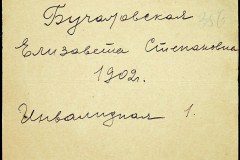 Бучаловская
Елизавета Степановна
1902г.
Инвалидная 1.